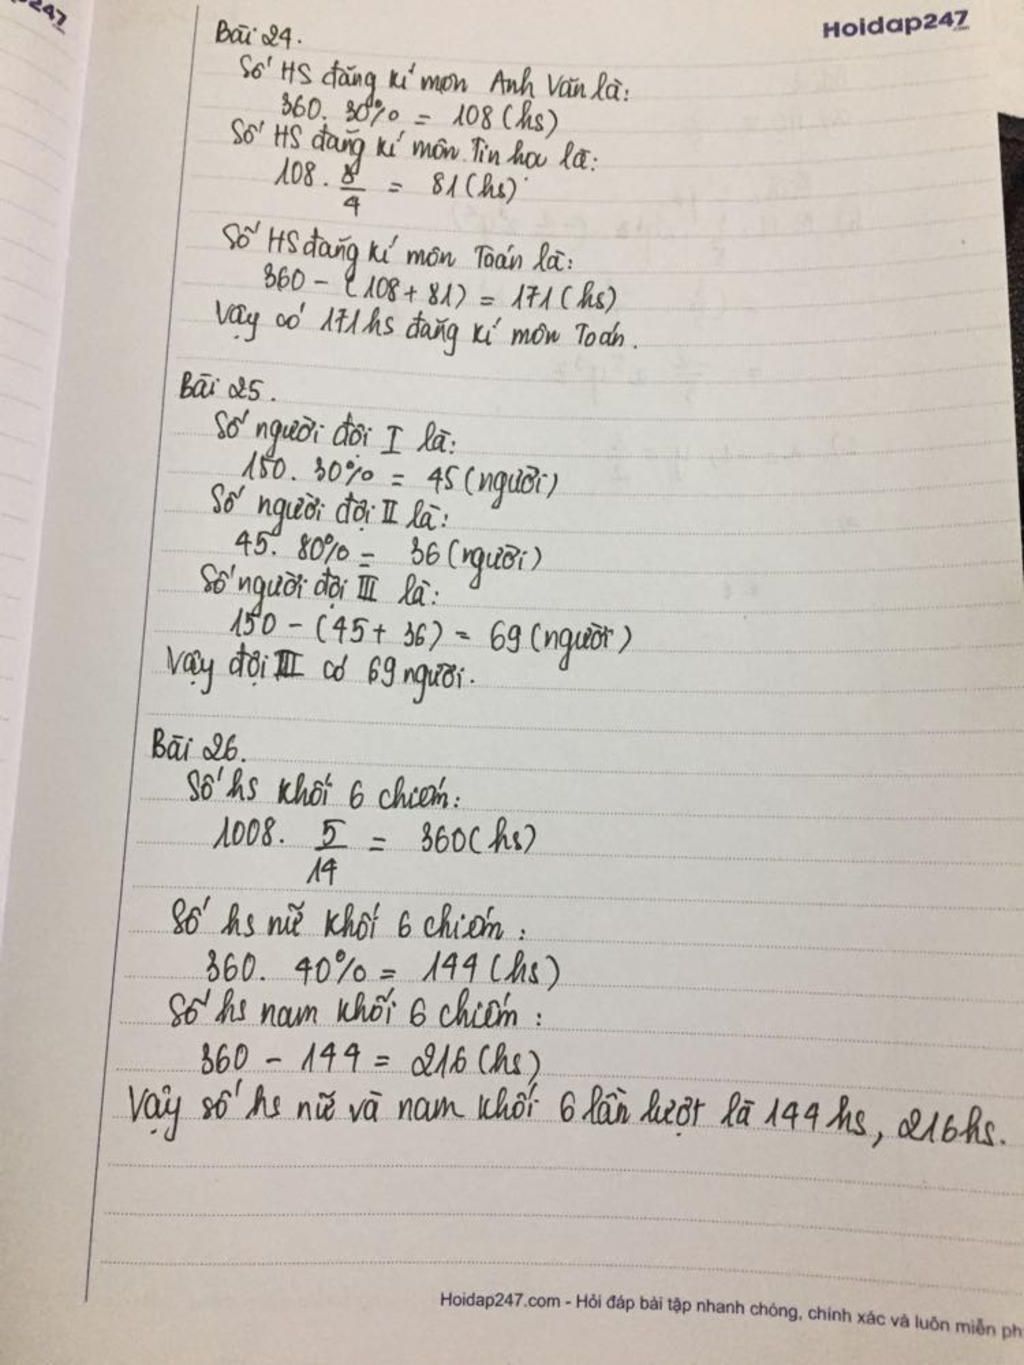 247
Hoidap247
.com
Bài 24.
Số HS đăng kí môn Anh Văn là:
360. 30% = 108 (hs)
Số HS đăng kí môn Tin học là:
108. 3/4 = 81 (hs)
Số HS đăng kí môn Toán là:
360 - (108 + 81) = 171 (hs)
Vậy có 171 hs đăng kí môn Toán.
Bài 25.
Số người đội I là:
150. 30% = 45 (người)
Số người đội II là:
45. 80% = 36 (người)
Số người đội III là:
150 - (45 + 36) = 69 (người)
Vậy đội III có 69 người.
Bài 26.
Số hs khối 6 chiếm:
1008. 5/14 = 360 (hs)
Số hs nữ khối 6 chiếm:
360. 40% = 144 (hs)
Số hs nam khối 6 chiếm:
360 - 144 = 216 (hs)
Vậy số hs nữ và nam khối 6 lần lượt là 144 hs, 216 hs.
Hoidap247.com - Hỏi đáp bài tập nhanh chóng, chính xác và luôn miễn ph